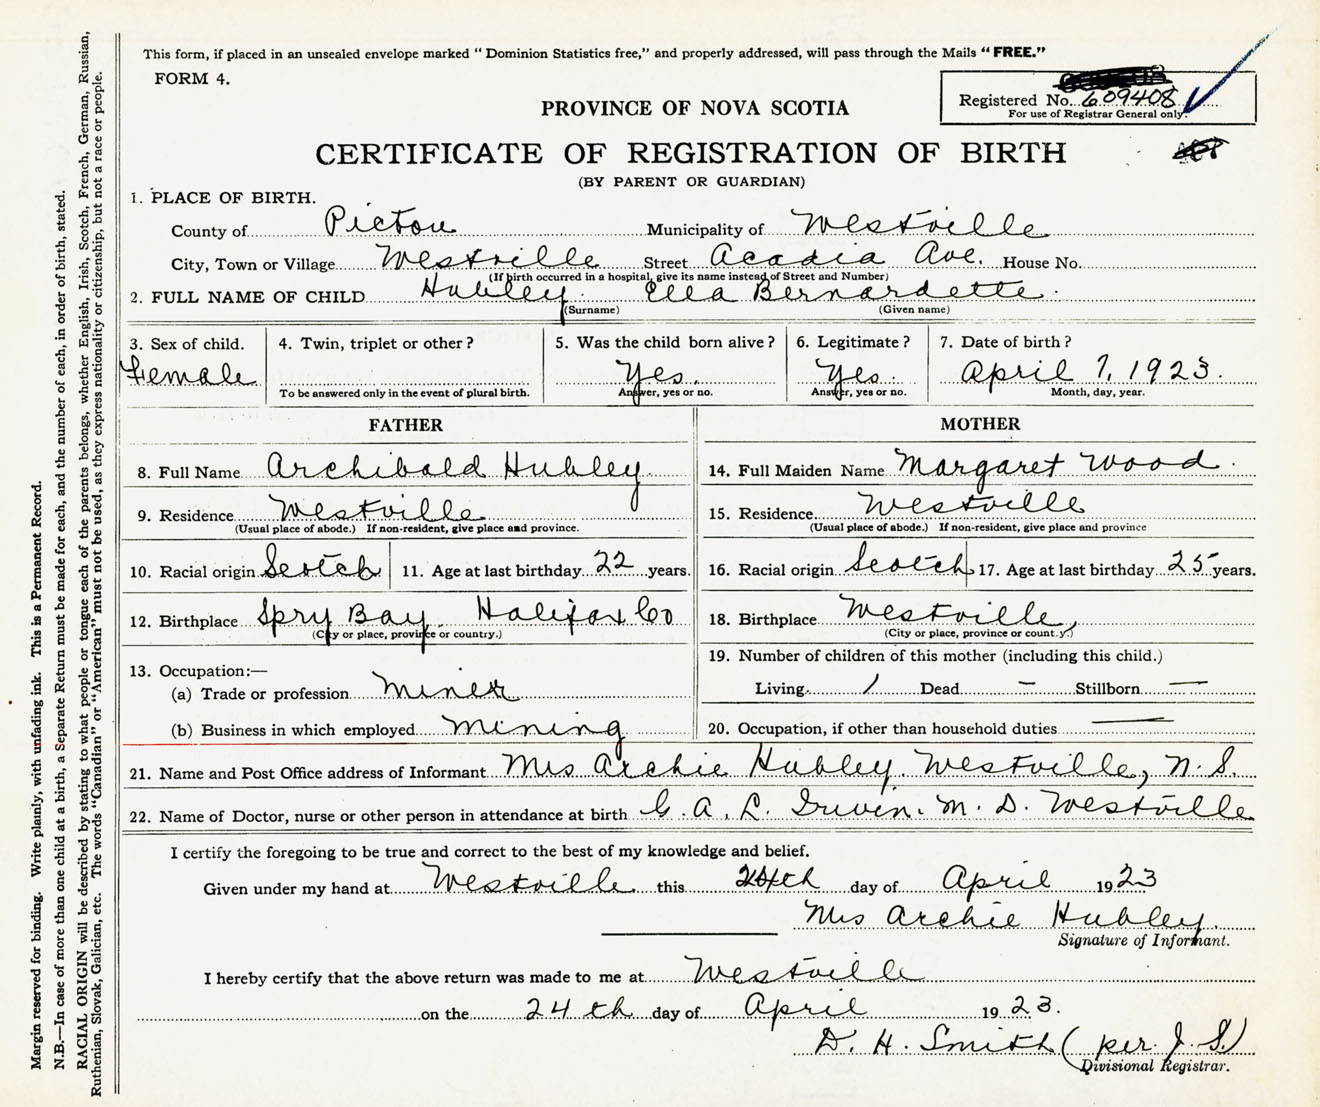 This form, if placed in an unsealed envelope marked " Dominion Statistics free," and properly addressed, will pass through the Mails " FREE."
FORM 4.
Registered No. 609408
For use of Registrar General only.
PROVINCE OF NOVA SCOTIA
CERTIFICATE OF REGISTRATION OF BIRTH
(BY PARENT OR GUARDIAN)
1. PLACE OF BIRTH.
County of Pictou Municipality of Westville
City, Town or Village Westville Street Acadia Ave. House No.
(If birth occurred in a hospital, give its name instead of Street and Number)
2. FULL NAME OF CHILD Hubley. Ella Bernardette.
(Surname) (Given name)
3. Sex of child. 4. Twin, triplet or other? 5. Was the child born alive? 6. Legitimate? 7. Date of birth?
Female Yes. Yes. April 7, 1923.
To be answered only in the event of plural birth. Answer, yes or no. Answer, yes or no. Month, day, year.
FATHER MOTHER
8. Full Name Archibald Hubley 14. Full Maiden Name Margaret Wood.
9. Residence Westville 15. Residence Westville
(Usual place of abode.) If non-resident, give place and province. (Usual place of abode.) If non-resident, give place and province
10. Racial origin Scotch 11. Age at last birthday 22 years. 16. Racial origin Scotch 17. Age at last birthday 25 years.
12. Birthplace Spry Bay, Halifax Co 18. Birthplace Westville,
(City or place, province or country.) (City or place, province or count.y.)
13. Occupation:— 19. Number of children of this mother (including this child.)
(a) Trade or profession Miner Living 1 Dead – Stillborn —
(b) Business in which employed Mining 20. Occupation, if other than household duties —
21. Name and Post Office address of Informant Mrs Archie Hubley. Westville, N. S.
22. Name of Doctor, nurse or other person in attendance at birth G. A. L. Irwin. M. D. Westville
I certify the foregoing to be true and correct to the best of my knowledge and belief.
Given under my hand at Westville this 24th day of April 1923
Mrs Archie Hubley.
Signature of Informant.
I hereby certify that the above return was made to me at Westville
on the 24th day of April 1923.
D. H. Smith (per. J. S.)
Divisional Registrar.
Margin reserved for binding. Write plainly, with unfading ink. This is a Permanent Record.
N.B.—In case of more than one child at a birth, a Separate Return must be made for each, and the number of each, in order of birth, stated.
RACIAL ORIGIN will be described by stating to what people or tongue each of the parents belongs, whether English, Irish, Scotch, French, German, Russian,
Ruthenian, Slovak, Galician, etc. The words "Canadian" or "American" must not be used, as they express nationality or citizenship, but not a race or people.